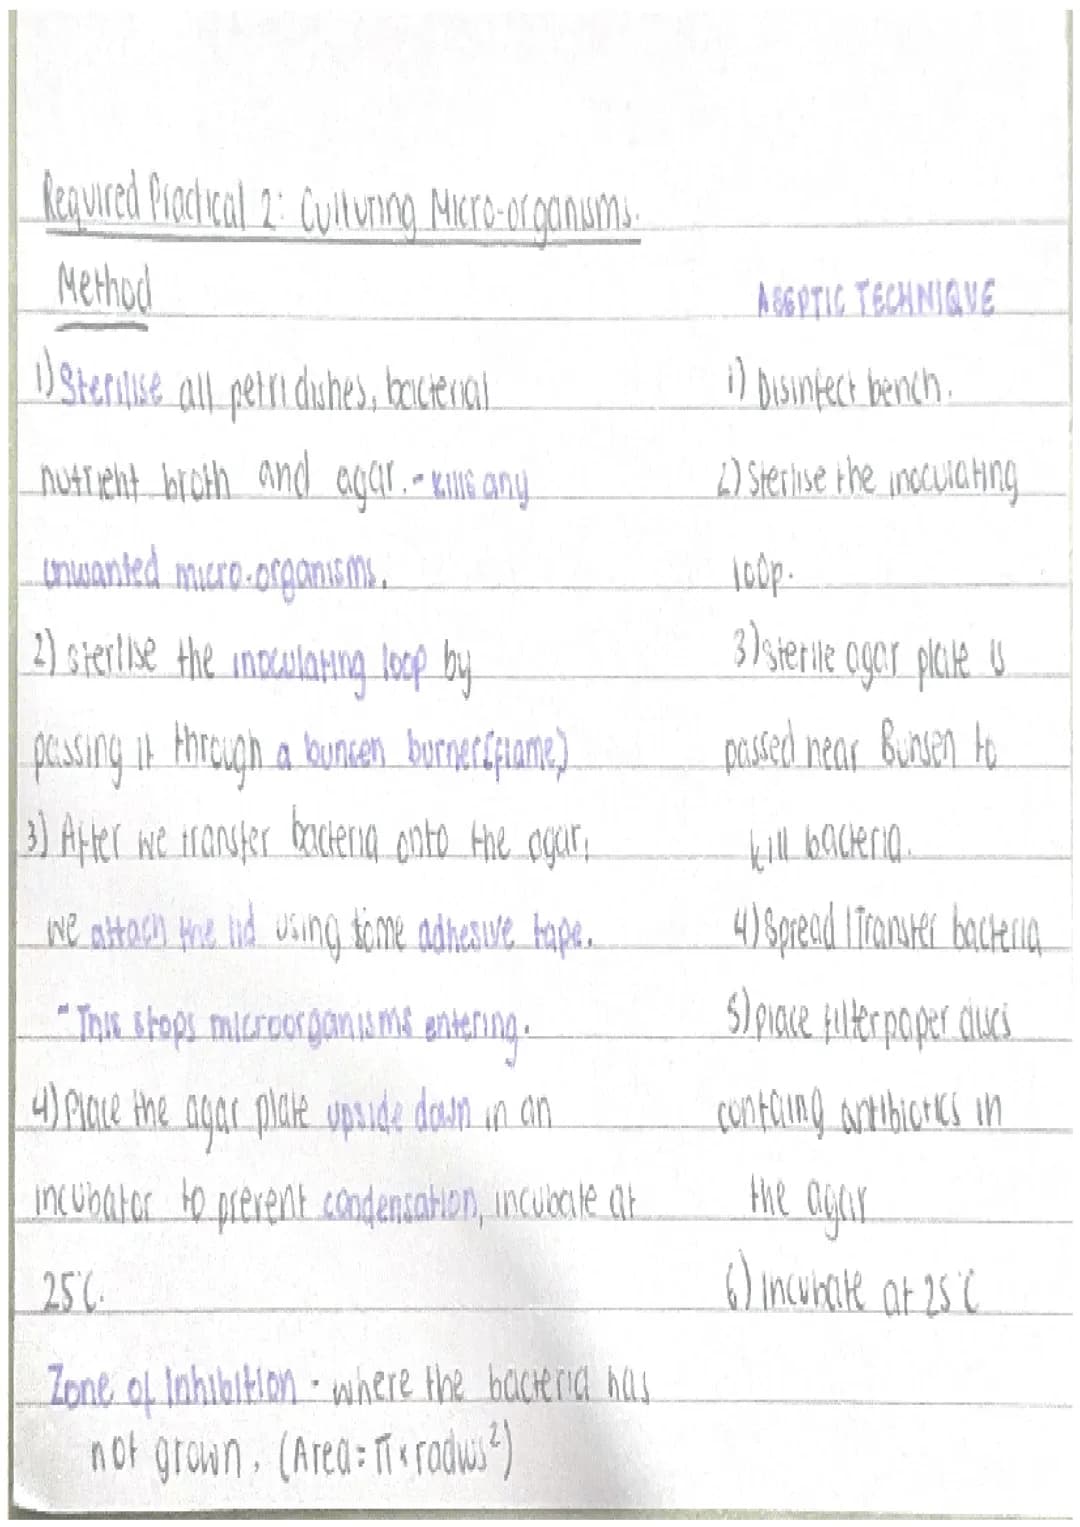 Required Practical 2: Culturing Micro-organisms.
Method
1) Sterilise all petri dishes, bacterial
nutrient broth and agar. - kills any
unwanted micro-organisms.
2) sterilise the inoculating loop by
passing it through a bunsen burner (flame)
3) After we transfer bacteria onto the agar,
we attach the lid using some adhesive tape.
- This stops microorganisms entering.
4) Place the agar plate upside down in an
incubator to prevent condensation, incubate at
25°C.
Zone of Inhibition - where the bacteria has
not grown. (Area = π × radius²)
ASEPTIC TECHNIQUE
1) Disinfect bench.
2) Sterlise the inoculating
loop.
3) sterile agar plate is
passed near Bunsen to
kill bacteria.
4) Spread / Transfer bacteria
5) place filter paper discs
containg antibiotics in
the agar
6) Incubate at 25°C